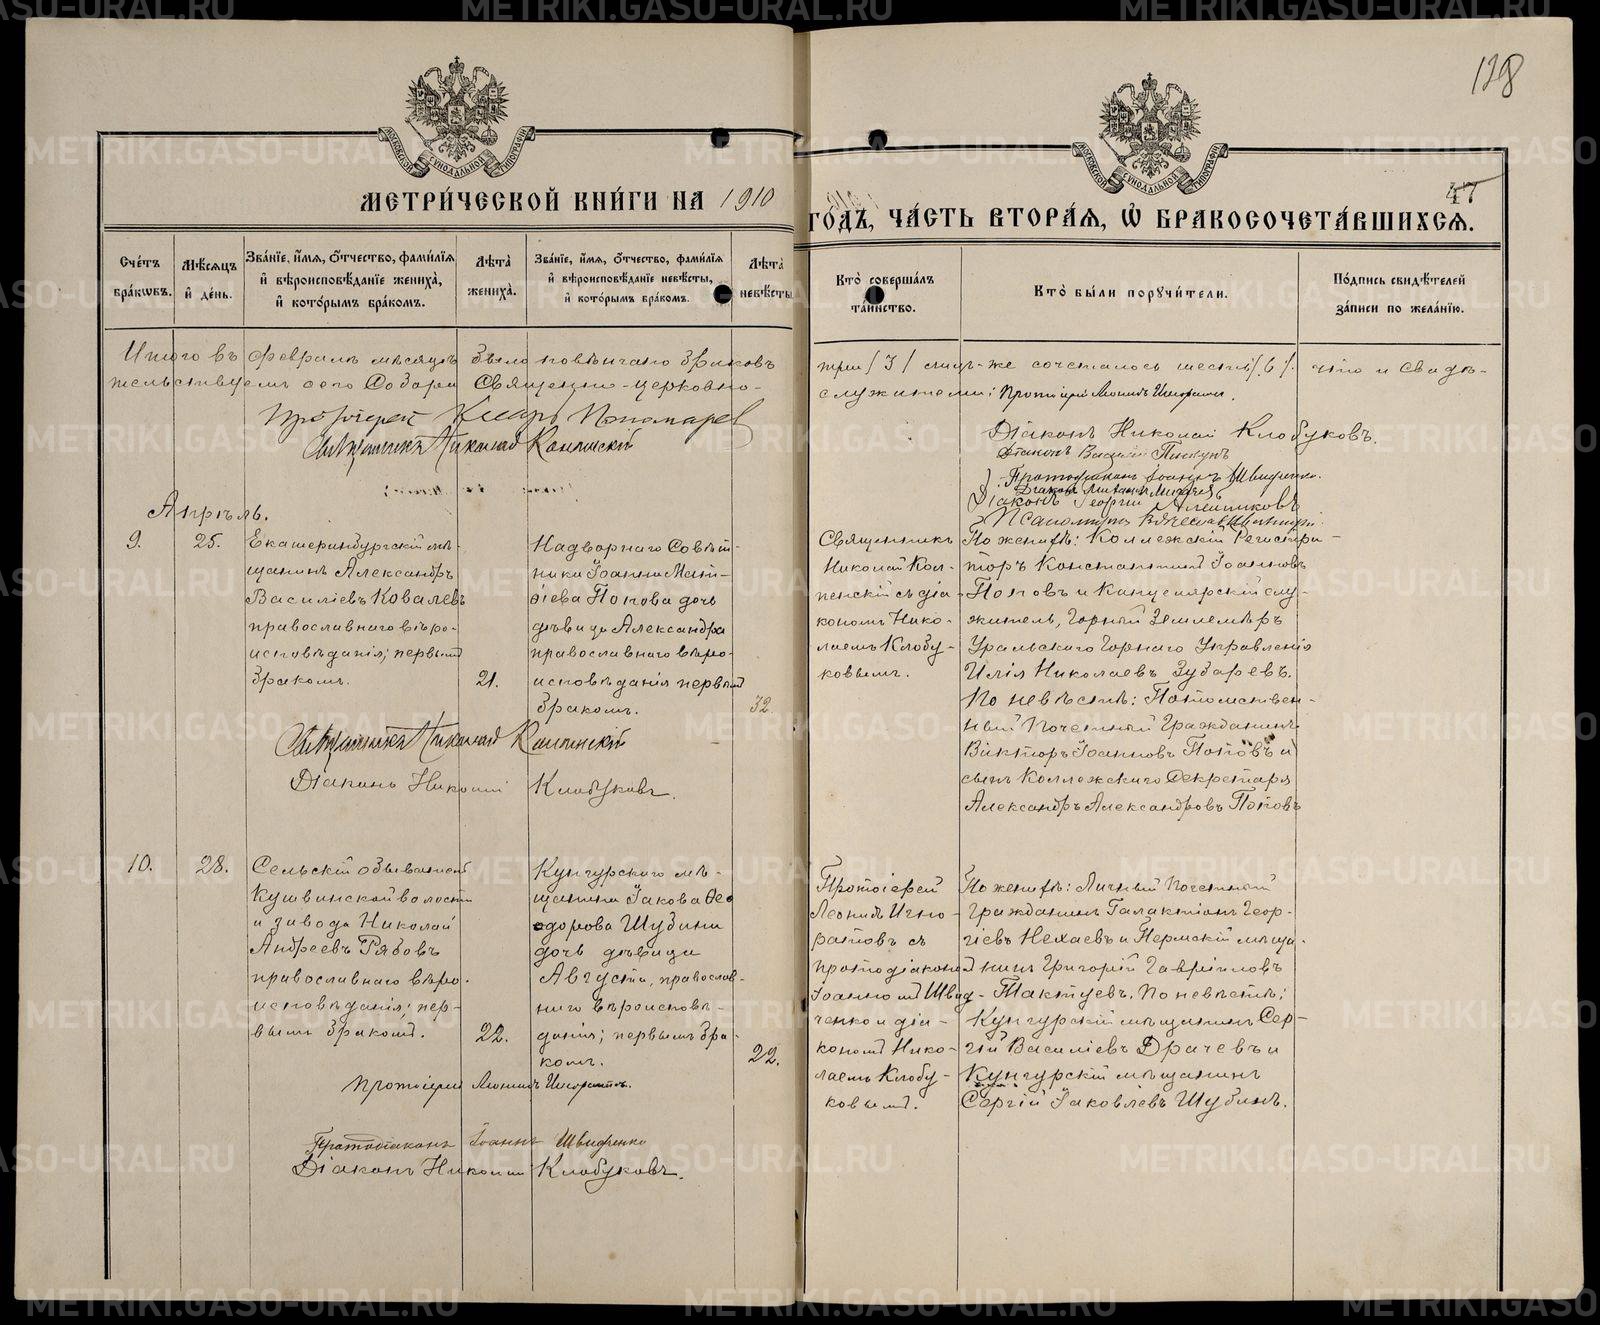 128
МЕТРИ́ЧЕСКОЙ КНИ́ГИ НА 1910
47
ГО́ДЪ, ЧА́СТЬ ВТОРА́Я, Ѽ БРАКОСОЧЕТА́ВШИХСЯ.
МОСКОВСКОЙ СѴНОДАЛЬНОЙ ТИПОГРАФІИ
МОСКОВСКОЙ СѴНОДАЛЬНОЙ ТИПОГРАФІИ
Сче́тъ бра́кѡвъ.
Мѣ́сяцъ и҆ де́нь.
Зва́нїе, и҆́мя, ѻ҆́тчество, фами́лїя и҆ вѣроисповѣ́данїе жениха̀, и҆ кото́рымъ бра́комъ.
Лѣ́та жениха̀.
Зва́нїе, и҆́мя, ѻ҆́тчество, фами́лїя и҆ вѣроисповѣ́данїе невѣ́сты, и҆ кото́рымъ бра́комъ.
Лѣ́та невѣ́сты.
Кто̀ соверша́лъ та́инство.
Кто̀ бы́ли порꙋчи́тели.
По́дпись свидѣ́телей за́писи по жела́нїю.
Итого въ февралѣ мѣсяцѣ было повѣнчано браковъ
три /3/ лицъ-же сочеталось шесть /6/. что и свидѣ-
тельствуемъ сего Собора Священно-церковно-
служители: Протоіерей Леонидъ Игноратовъ.
Протоіерей Пономарев
Священникъ Николай Колпенскій
Діаконъ Николай Клобуковъ.
Діаконъ Василій
Протодіаконъ Іоаннъ Швидченко.
Діаконъ Георгій
Псаломщикъ
Апрѣль.
9.
25.
Екатеринбургскій мѣ-
щанинъ Александръ
Василіевъ Ковалевъ
православнаго вѣро-
исповѣданія; первымъ
бракомъ.
21.
Надворнаго Совѣт-
ника Іоанна Мат-
ѳіева Попова дочь
дѣвица Александра
православнаго вѣро-
исповѣданія первымъ
бракомъ.
32.
Священникъ
Николай Кол-
пенскій съ діа-
кономъ Нико-
лаемъ Клобу-
ковымъ.
По женихѣ: Коллежскій Регистра-
торъ Константинъ Іоанновъ
Поповъ и Канцелярскій слу-
житель, Горный Землемѣръ
Уральскаго Горнаго Управленія
Илія Николаевъ Зубаревъ.
По невѣстѣ: Потомствен-
ный Почетный Гражданинъ
Викторъ Іоанновъ Поповъ и
сынъ Коллежскаго Секретаря
Александръ Александровъ Поповъ
Священникъ Николай Колпенскій
Діаконъ Николай Клобуковъ.
10.
28.
Сельскій обыватель
Кушвинской волости
и завода Николай
Андреевъ Рябовъ
православнаго вѣро-
исповѣданія; пер-
вымъ бракомъ.
22.
Кунгурскаго мѣ-
щанина Іакова Ѳео
дорова Шубина
дочь дѣвица
Августа, православ-
наго вѣроисповѣ-
данія; первымъ бра-
комъ.
22.
Протоіерей
Леонидъ Игно-
ратовъ съ
протодіакономъ
Іоанномъ Швид-
ченко и діа-
кономъ Нико-
лаемъ Клобу-
ковымъ.
По женихѣ: Личный Почетный
Гражданинъ Галактіонъ Геор-
гіевъ Нехаевъ и Пермскій мѣща-
нинъ Григорій Гавріиловъ
Тактуевъ. По невѣстѣ:
Кунгурскій мѣщанинъ Сер-
гій Василіевъ Драчевъ и
Кунгурскій мѣщанинъ
Сергій Іаковлевъ Шубинъ.
Протоіерей Леонидъ Игноратовъ.
Протодіаконъ Іоаннъ Швидченко
Діаконъ Николай Клобуковъ.
METRIKI.GASO-URAL.RU